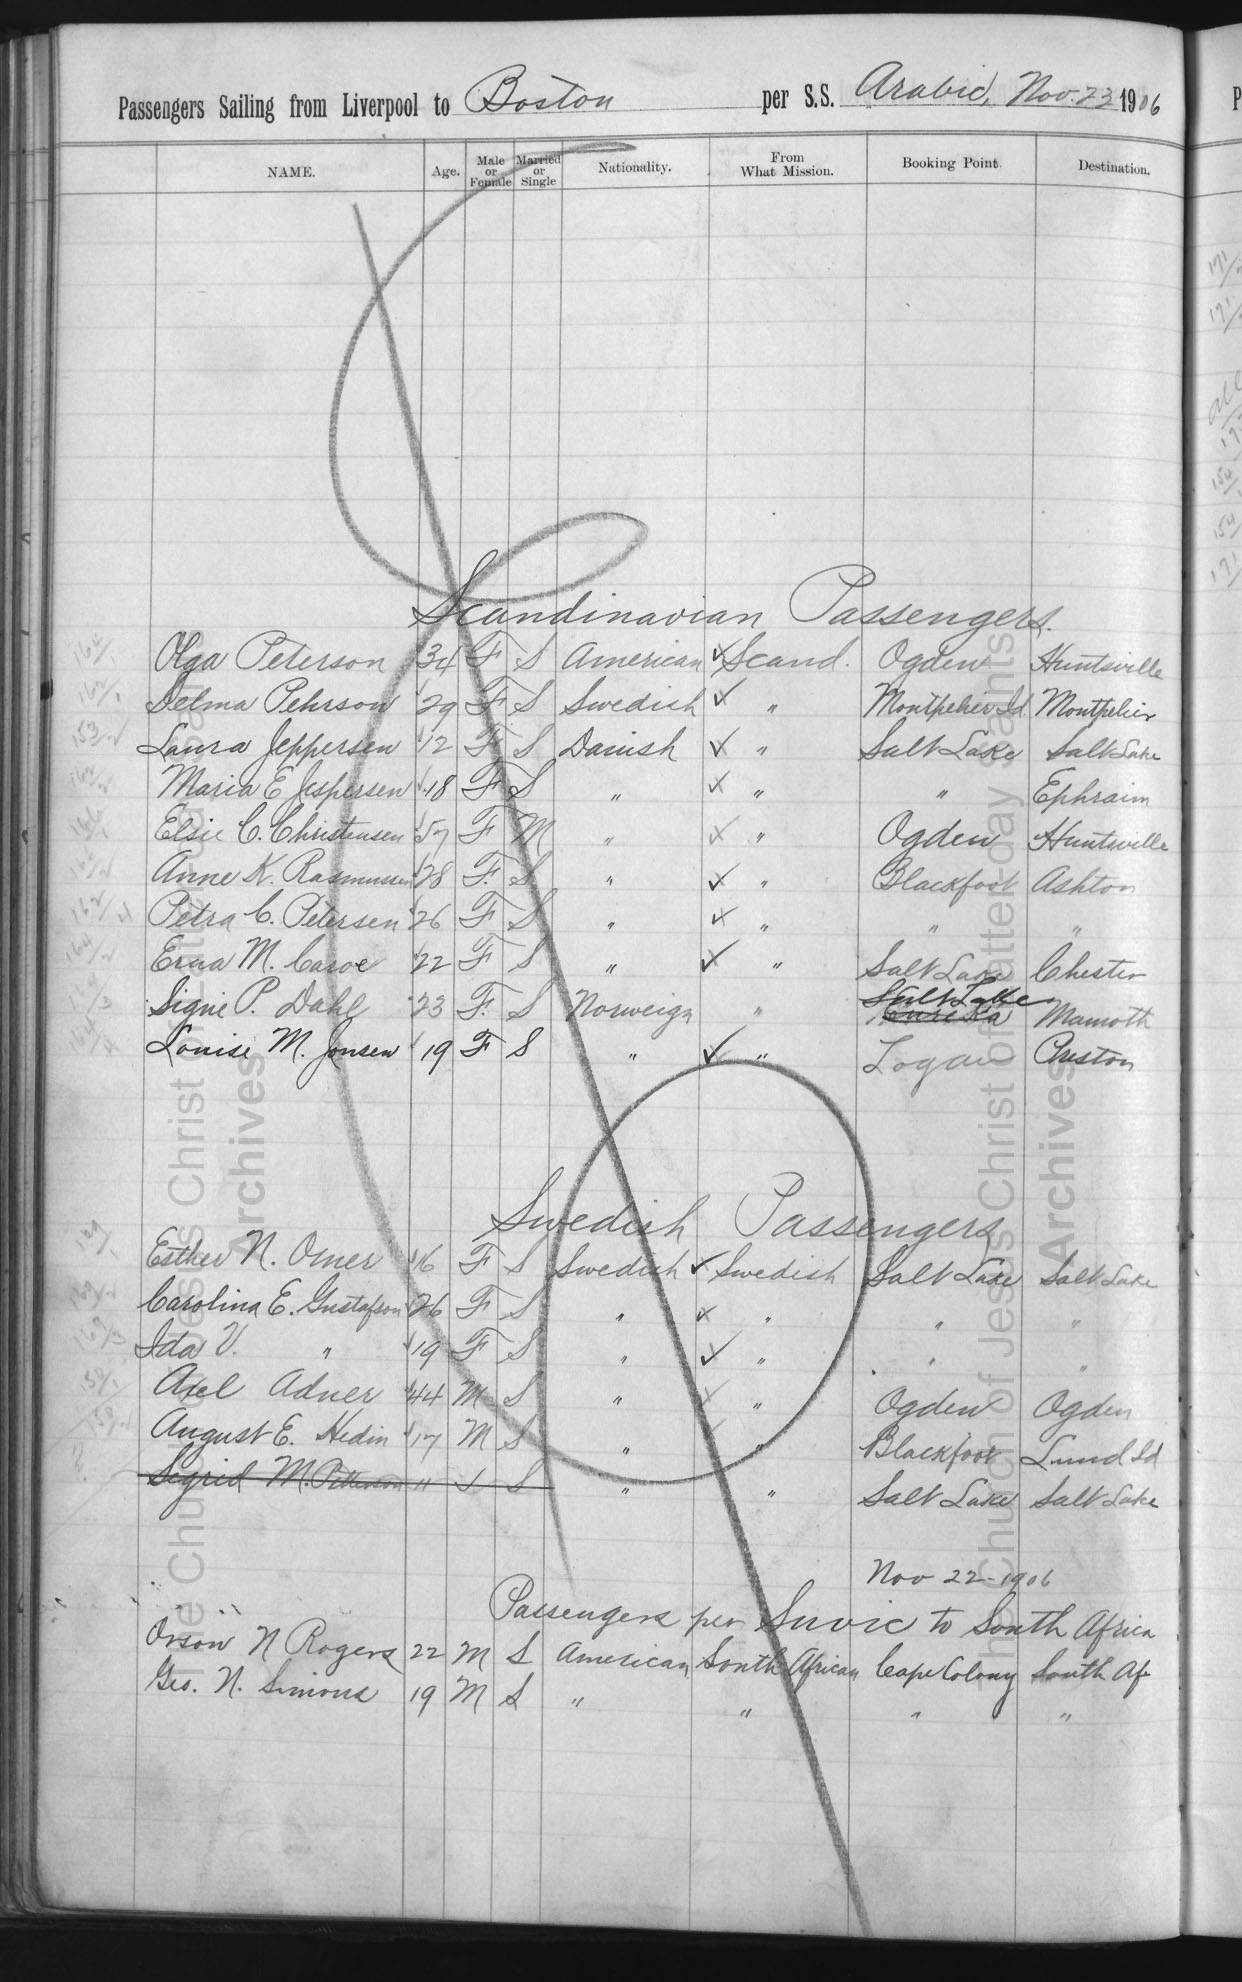 Passengers Sailing from Liverpool to Boston per S.S. Arabic, Nov. 23 1906
NAME. Age. Male or Female Married or Single Nationality. From What Mission. Booking Point. Destination.
Scandinavian Passengers.
Olga Peterson 34 F S American ✓ Scand. Ogden Huntsville
Delma Pehrson 29 F S Swedish ✓ " Montpelier Id. Montpelier
Laura Jeppersen 12 F S Danish ✓ " Salt Lake Salt Lake
Maria E Jespersen 18 F S " ✓ " " Ephraim
Elsie C. Christensen 57 F M " ✓ " Ogden Huntsville
Anne K. Rasmussen 28 F. S " ✓ " Blackfoot Ashton
Petra C. Petersen 26 F S " ✓ " " "
Erna M. Caroe 22 F S " ✓ " Salt Lake Chester
Signe P. Dahl 23 F. S Norweign " Salt Lake Eureka Mamoth
Louise M. Jensen 19 F S " ✓ " Logan Preston
Swedish Passengers
Esther N. Omer 16 F S Swedish ✓ Swedish Salt Lake Salt Lake
Carolina E. Gustafson 26 F S " ✓ " " "
Ida V. " 19 F S " ✓ " " "
Axel Adner 44 M S " ✓ " Ogden Ogden
August E. Hedin 17 M S " " Blackfoot Lund Id
Sigrid M. Petterson 11 S " " Salt Lake Salt Lake
Nov 22-1906
Passengers per Suvic to South Africa
Orson N Rogers 22 M S American South African Cape Colony South Af
Geo. N. Simons 19 M S " " " "
The Church of Jesus Christ of Latter-day Saints
Archives
The Church of Jesus Christ of Latter-day Saints
Archives